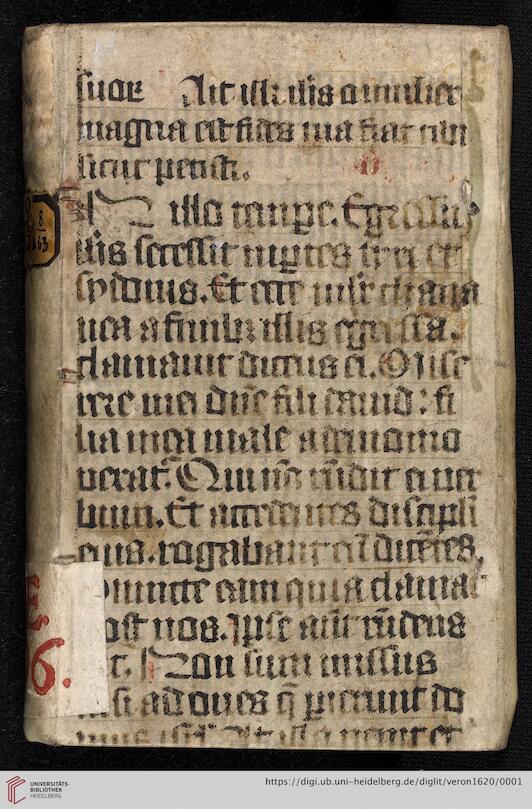 suoꝝ Ait ih̄s illis o mulier
magna est fides tua fiat tibi
sicut petisti.
IN illo tempe. Egressus
ih̄s secessit in ptes tyri et
sydonis. Et ecce mulier chana
nea a finib illis egressa.
clamauit dicens ei. Mise
rere mei dn̄e fili dauid: fi
lia mea male a demonio
uexat. Qui nō rn̄dit ei uer
bum. Et accedentes discipli
eius. rogabant eū dicētes.
Dimitte eam quia clamat
post nos. Ipse aūt rn̄dens
ait. Non sum missus
nisi ad oues q̄ perierunt do
mus isrl. At illa uenit et
8
63
E.
6.
UNIVERSITÄTS-
BIBLIOTHEK
HEIDELBERG
https://digi.ub.uni-heidelberg.de/diglit/veron1620/0001